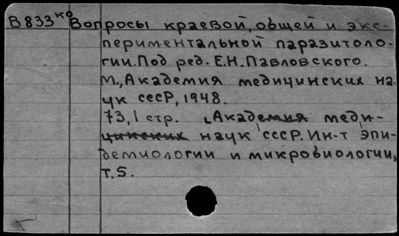 В833 ко Вопросы краевой, общей и экс-
периментальной паразитоло-
гии. Под ред. Е.Н. Павловского.
М., Академия медицинских на-
ук СССР, 1948.
73,1 стр. (Академия меди-
цинских наук СССР. Ин-т эпи-
демиологии и микробиологии,
т. 5.